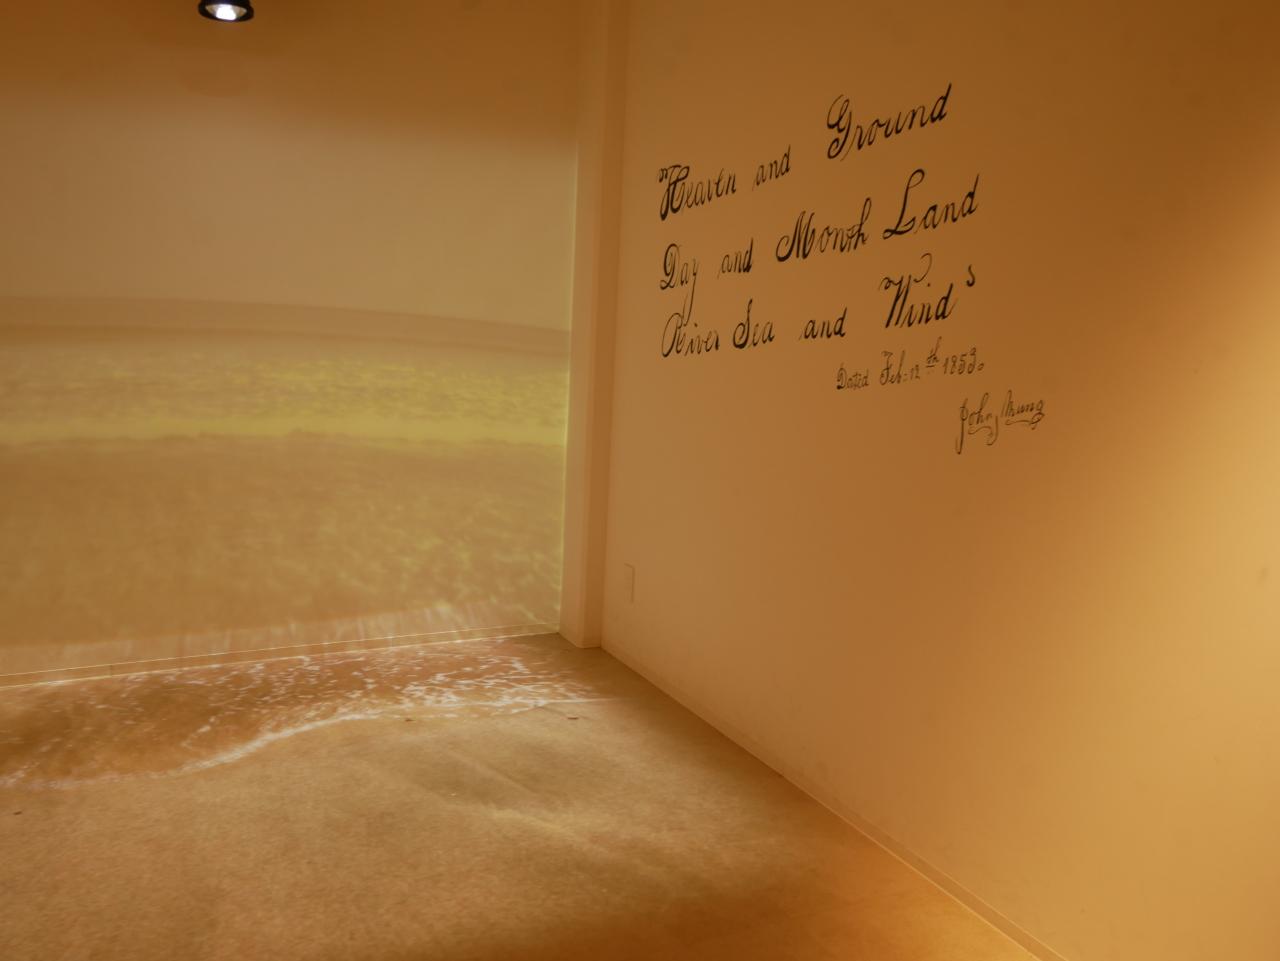 Heaven and Ground
Day and Month Land
River Sea and Wind s
Dated Feb: 12th 1853.
John Mung